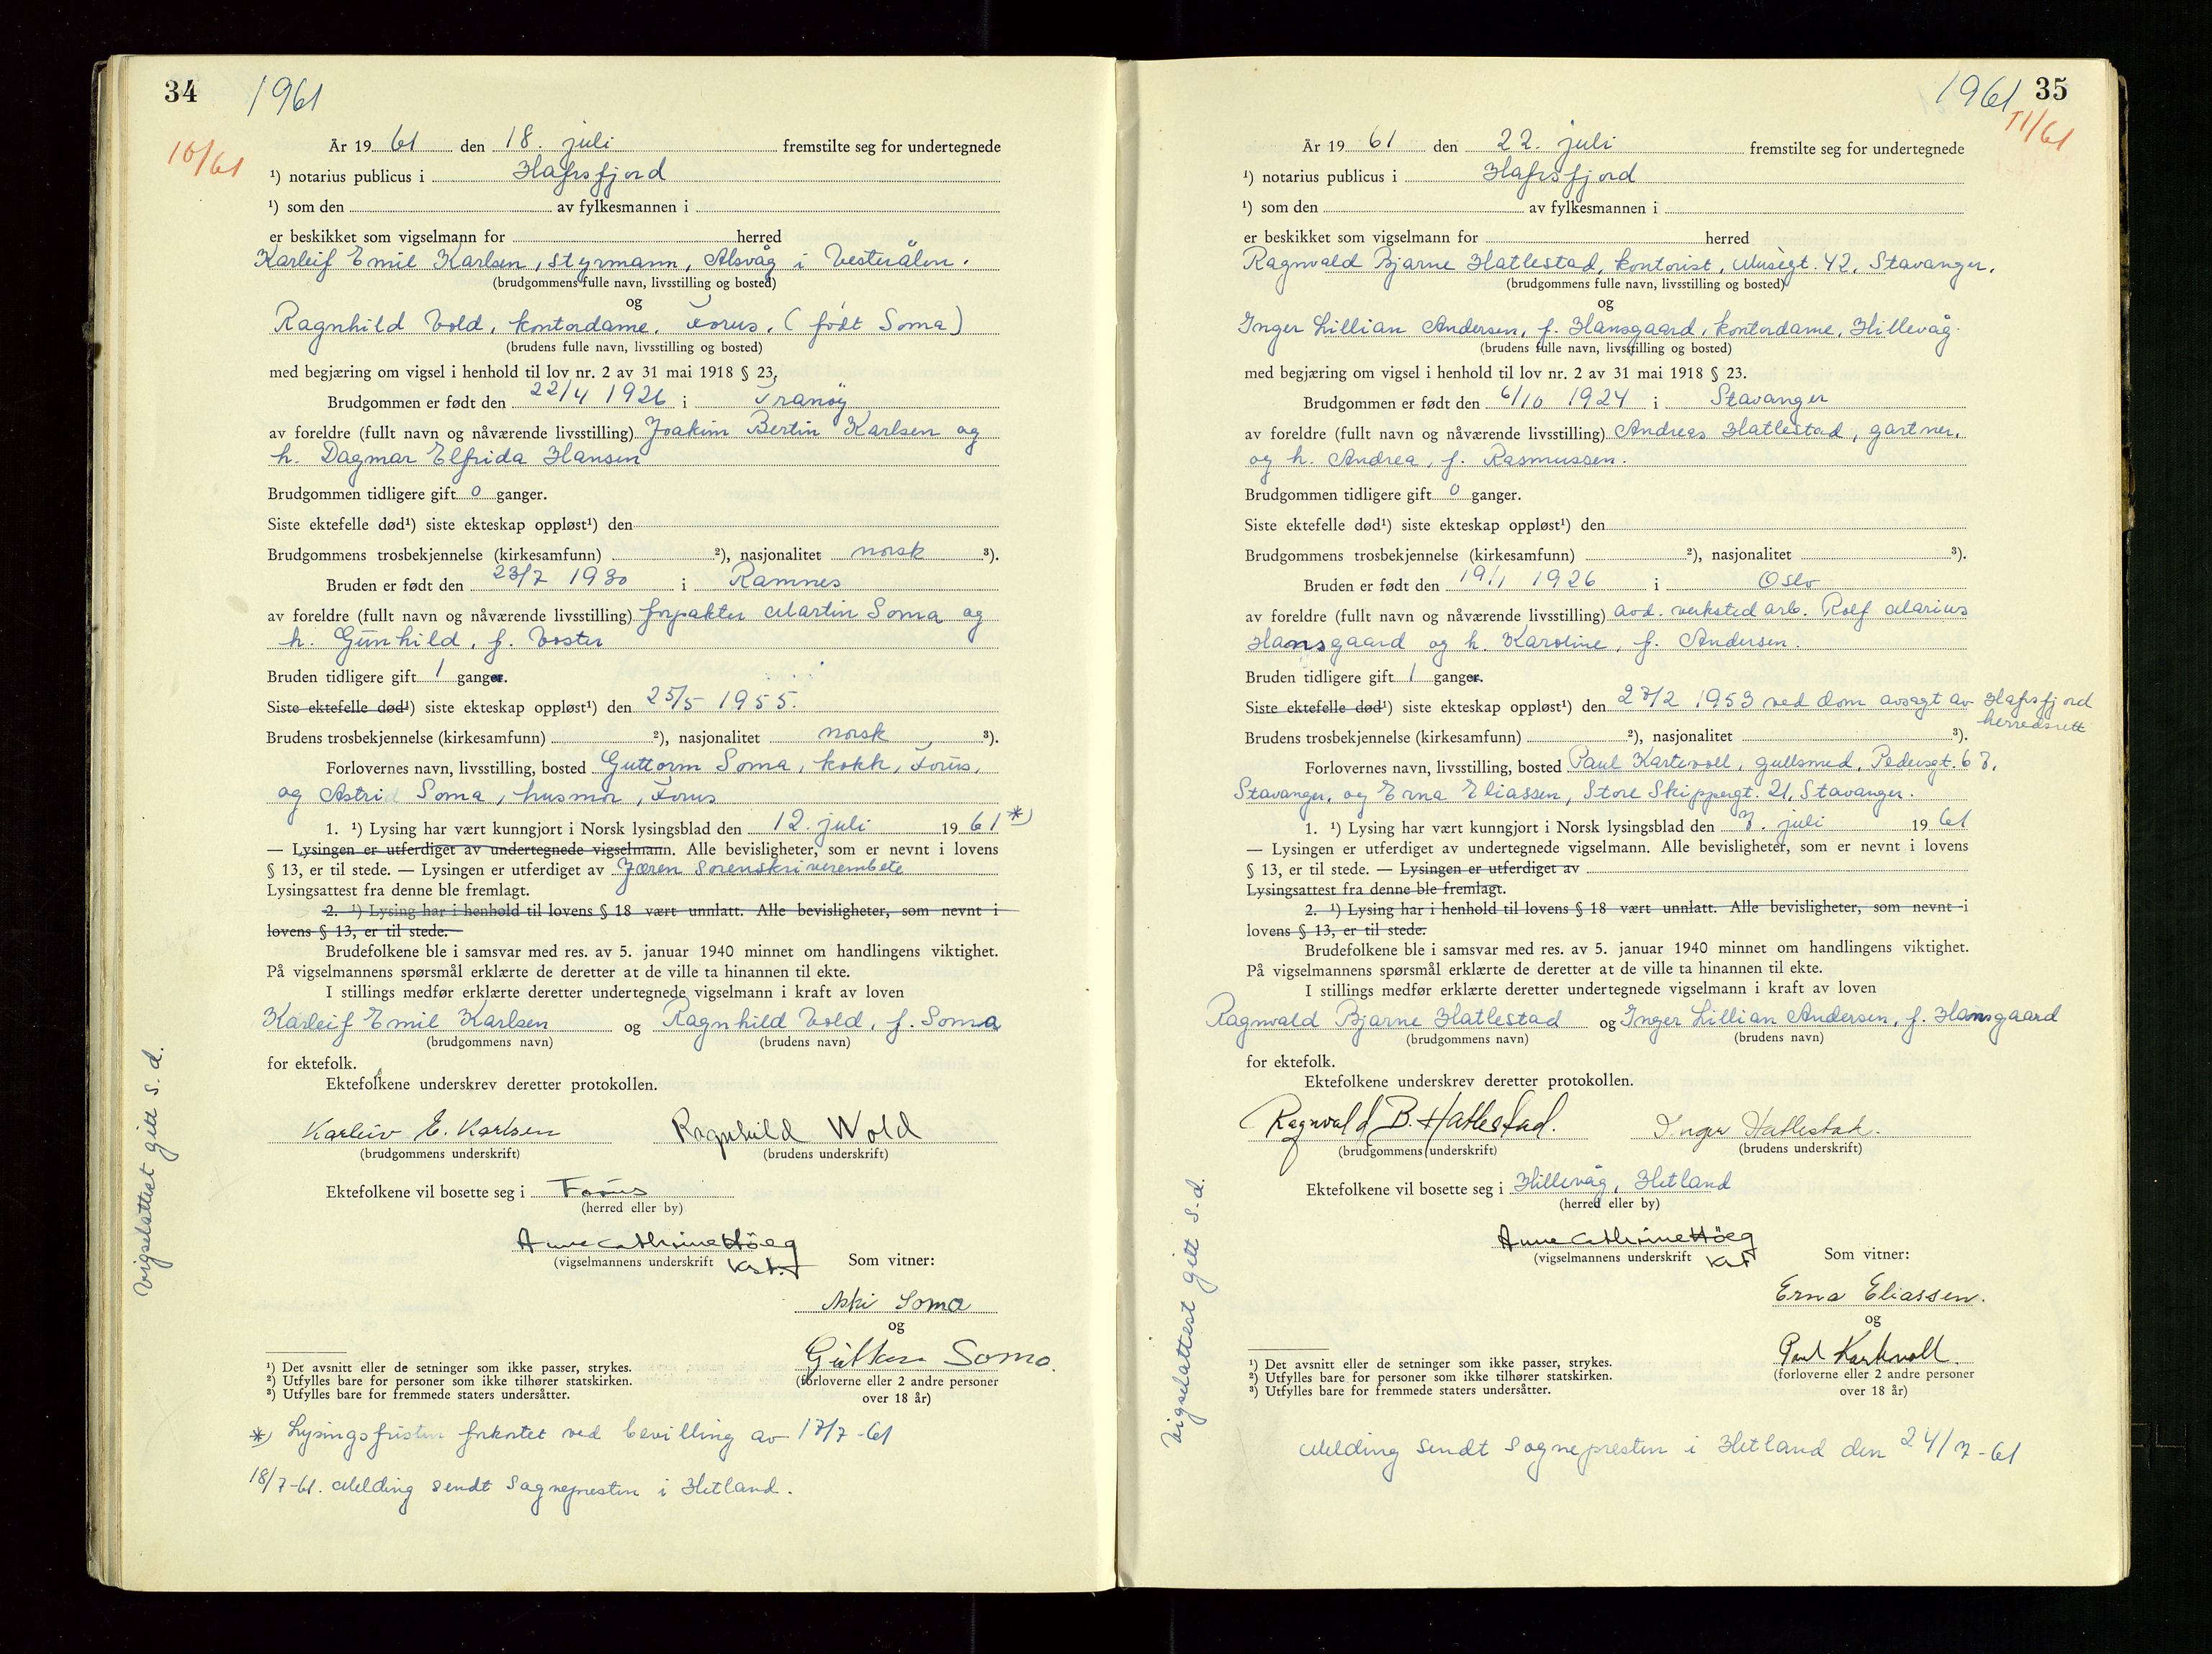 34
1961
10/61
År 19 61 den 18. juli fremstilte seg for undertegnede
¹) notarius publicus i Hafrsfjord
¹) som den av fylkesmannen i
er beskikket som vigselmann for herred
Karleif Emil Karlsen, styrmann, Alsvåg i Vesterålen.
(brudgommens fulle navn, livsstilling og bosted)
og
Ragnhild Vold, kontordame, Forus, (født Soma)
(brudens fulle navn, livsstilling og bosted)
med begjæring om vigsel i henhold til lov nr. 2 av 31 mai 1918 § 23,
Brudgommen er født den 22/4 1926 i Tranöy
av foreldre (fullt navn og nåværende livsstilling) Joakim Bertin Karlsen og
h. Dagmar Elfrida Hansen
Brudgommen tidligere gift 0 ganger.
Siste ektefelle død¹) siste ekteskap oppløst¹) den
Brudgommens trosbekjennelse (kirkesamfunn) ²), nasjonalitet norsk ³).
Bruden er født den 23/7 1930 i Ramnes
av foreldre (fullt navn og nåværende livsstilling) forpakter Martin Soma og
h. Gunhild, f. Voster
Bruden tidligere gift 1 ganger.
Siste ektefelle død¹) siste ekteskap oppløst¹) den 25/5 1955.
Brudens trosbekjennelse (kirkesamfunn) ²), nasjonalitet norsk ³).
Forlovernes navn, livsstilling, bosted Guttorm Soma, kokk, Forus,
og Astrid Soma, husmor, Forus
1. ¹) Lysing har vært kunngjort i Norsk lysingsblad den 12. juli 19 61 *)
— Lysingen er utferdiget av undertegnede vigselmann. Alle bevisligheter, som er nevnt i lovens
§ 13, er til stede. — Lysingen er utferdiget av Jæren Sorenskriverembete
Lysingsattest fra denne ble fremlagt.
2. ¹) Lysing har i henhold til lovens § 18 vært unnlatt. Alle bevisligheter, som nevnt i
lovens § 13, er til stede.
Brudefolkene ble i samsvar med res. av 5. januar 1940 minnet om handlingens viktighet.
På vigselmannens spørsmål erklærte de deretter at de ville ta hinannen til ekte.
I stillings medfør erklærte deretter undertegnede vigselmann i kraft av loven
Karleif Emil Karlsen og Ragnhild Vold, f. Soma
(brudgommens navn) (brudens navn)
for ektefolk.
Ektefolkene underskrev deretter protokollen.
Karleiv E. Karlsen Ragnhild Wold
(brudgommens underskrift) (brudens underskrift)
Ektefolkene vil bosette seg i Forus
(herred eller by)
Anne Cathrine Höeg
(vigselmannens underskrift Kst. Som vitner:
Soma
og
Soma
(forloverne eller 2 andre personer
over 18 år)
¹) Det avsnitt eller de setninger som ikke passer, strykes.
²) Utfylles bare for personer som ikke tilhører statskirken.
³) Utfylles bare for fremmede staters undersåtter.
*) Lysingsfristen forkortet ved bevilling av 17/7-61
18/7-61. Melding sendt Sognepresten i Hetland.
Vigselattest gitt s.d.
1961 35
11/61
År 19 61 den 22. juli fremstilte seg for undertegnede
¹) notarius publicus i Hafrsfjord
¹) som den av fylkesmannen i
er beskikket som vigselmann for herred
Ragnvald Bjarne Hatlestad, kontorist, Musègt. 42, Stavanger.
(brudgommens fulle navn, livsstilling og bosted)
og
Inger Lillian Andersen, f. Hansgaard, kontordame, Hillevåg.
(brudens fulle navn, livsstilling og bosted)
med begjæring om vigsel i henhold til lov nr. 2 av 31 mai 1918 § 23.
Brudgommen er født den 6/10 1924 i Stavanger
av foreldre (fullt navn og nåværende livsstilling) Andreas Hatlestad, gartner,
og h. Andrea, f. Rasmussen.
Brudgommen tidligere gift 0 ganger.
Siste ektefelle død¹) siste ekteskap oppløst¹) den
Brudgommens trosbekjennelse (kirkesamfunn) ²), nasjonalitet ³).
Bruden er født den 19/1 1926 i Oslo
av foreldre (fullt navn og nåværende livsstilling) avd. verksted arb. Rolf Marius
Hansgaard og h. Karoline, f. Andersen.
Bruden tidligere gift 1 ganger.
Siste ektefelle død¹) siste ekteskap oppløst¹) den 27/2 1953 ved dom avsagt av Hafrsfjord
herredsrett
Brudens trosbekjennelse (kirkesamfunn) ²), nasjonalitet ³).
Forlovernes navn, livsstilling, bosted Paul Kartevoll, gullsmed, Pedersgt. 67,
Stavanger, og Erna Eliassen, Store Skippergt. 21, Stavanger.
1. ¹) Lysing har vært kunngjort i Norsk lysingsblad den 7. juli 19 61
— Lysingen er utferdiget av undertegnede vigselmann. Alle bevisligheter, som er nevnt i lovens
§ 13, er til stede. — Lysingen er utferdiget av
Lysingsattest fra denne ble fremlagt.
2. ¹) Lysing har i henhold til lovens § 18 vært unnlatt. Alle bevisligheter, som nevnt i
lovens § 13, er til stede.
Brudefolkene ble i samsvar med res. av 5. januar 1940 minnet om handlingens viktighet.
På vigselmannens spørsmål erklærte de deretter at de ville ta hinannen til ekte.
I stillings medfør erklærte deretter undertegnede vigselmann i kraft av loven
Ragnvald Bjarne Hatlestad og Inger Lillian Andersen, f. Hansgaard
(brudgommens navn) (brudens navn)
for ektefolk.
Ektefolkene underskrev deretter protokollen.
Ragnvald B. Hatlestad. Inger Hatlestad.
(brudgommens underskrift) (brudens underskrift)
Ektefolkene vil bosette seg i Hillevåg, Hetland
(herred eller by)
Anne Cathrine Höeg
(vigselmannens underskrift Kst Som vitner:
Erna Eliassen.
og
Paul Kartevoll
(forloverne eller 2 andre personer
over 18 år)
¹) Det avsnitt eller de setninger som ikke passer, strykes.
²) Utfylles bare for personer som ikke tilhører statskirken.
³) Utfylles bare for fremmede staters undersåtter.
Melding sendt Sognepresten i Hetland den 24/7-61
Vigselattest gitt s.d.